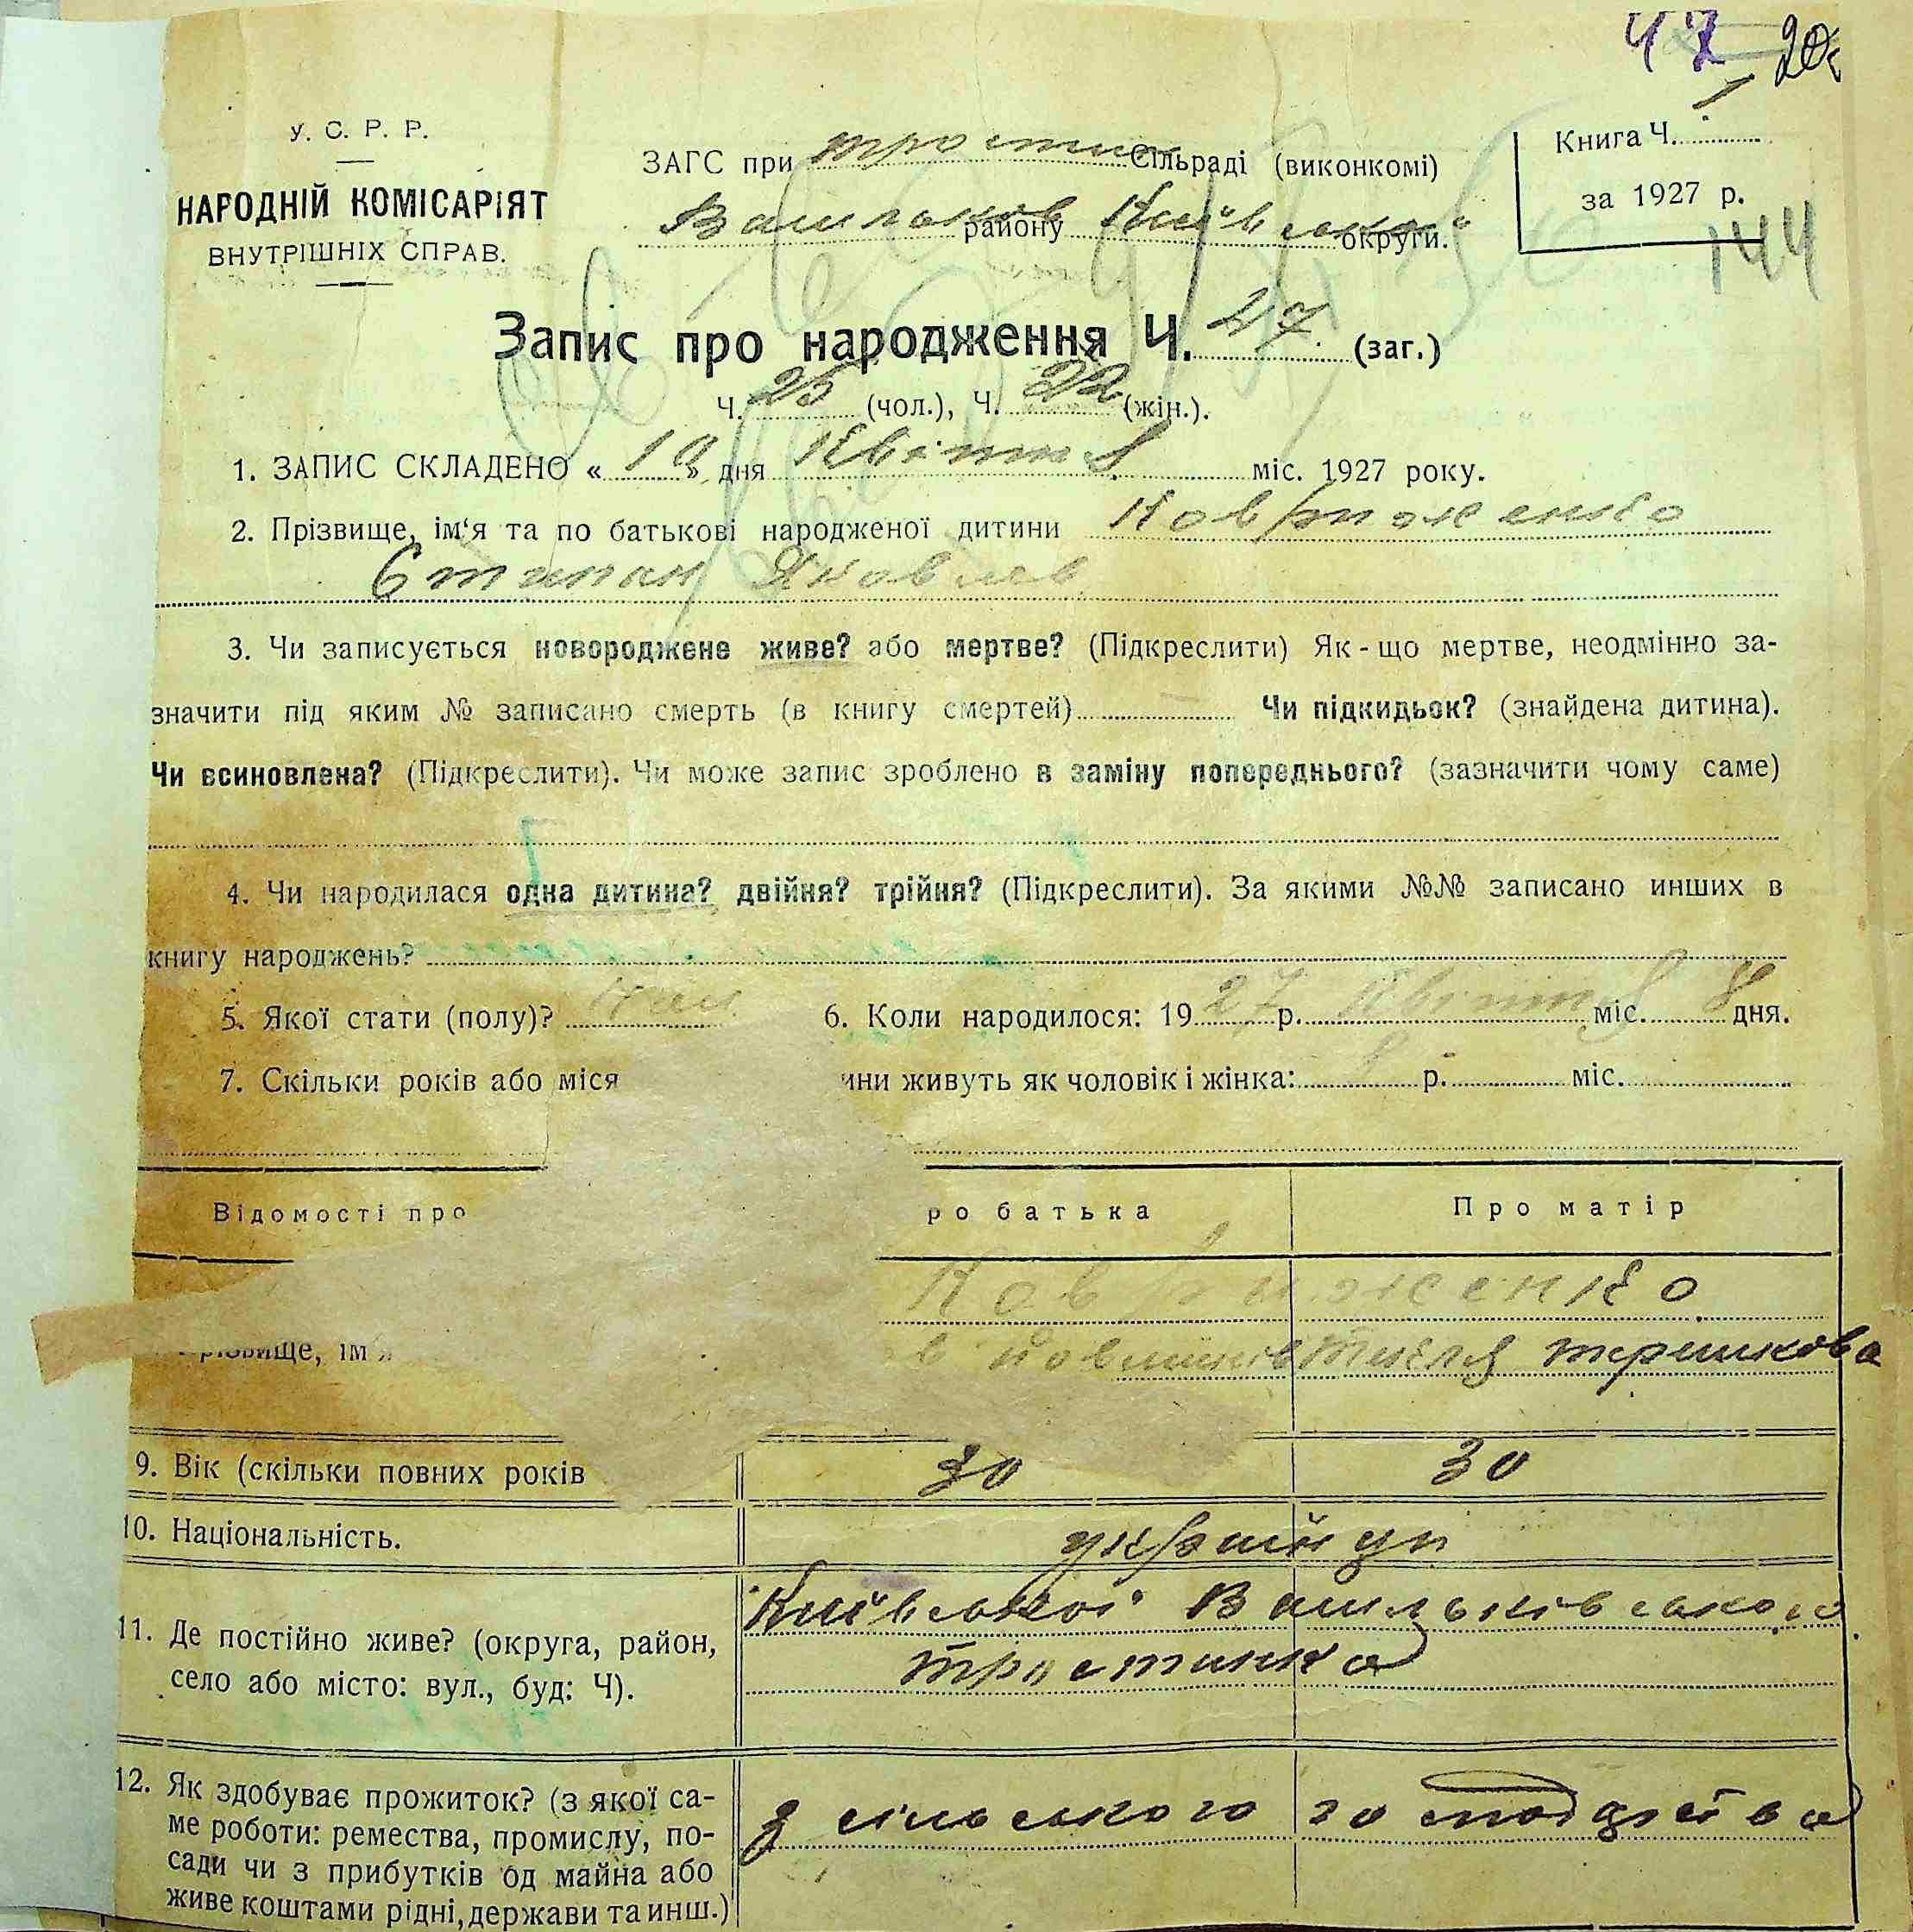 47 20
У. С. Р. Р.
НАРОДНІЙ КОМІСАРІЯТ
ВНУТРІШНІХ СПРАВ.
ЗАГС при тростин Сільраді (виконкомі)
Васильков району Київської округи.
Книга Ч. 1
за 1927 р.
144
Запис про народження Ч. 27 (заг.)
Ч. 25 (чол.), Ч. 22 (жін.).
1. ЗАПИС СКЛАДЕНО « 10 » дня Квітня міс. 1927 року.
2. Прізвище, ім‘я та по батькові народженої дитини Ковриженко
Стипан Яковлев
3. Чи записується новороджене живе? або мертве? (Підкреслити) Як-що мертве, неодмінно за-
значити під яким № записано смерть (в книгу смертей) Чи підкидьок? (знайдена дитина).
Чи всиновлена? (Підкреслити). Чи може запис зроблено в заміну попереднього? (зазначити чому саме)
4. Чи народилася одна дитина? двійня? трійня? (Підкреслити). За якими №№ записано инших в
книгу народжень?
5. Якої стати (полу)? чол. 6. Коли народилося: 19 27 р. Квітня міс. 8 дня.
7. Скільки років або міся ини живуть як чоловік і жінка: р. міс.
Відомості про ро батька Про матір
Ковриженко
різвище, ім'я Текля терешкова
9. Вік (скільки повних років 30 30
10. Національність. українци
11. Де постійно живе? (округа, район,
село або місто: вул., буд: Ч).
Київської Васильківського
тростинка
12. Як здобуває прожиток? (з якої са-
ме роботи: ремества, промислу, по-
сади чи з прибутків од майна або
живе коштами рідні, держави та инш.)
з сільського господарства